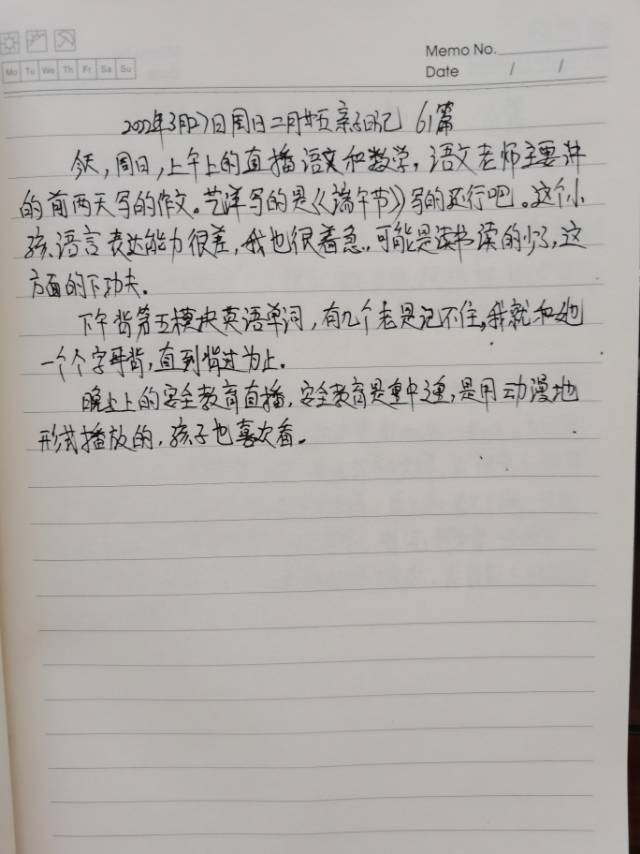 Memo No.
Mo Tu We Th Fr Sa Su
Date / /
2022年3月27日周日二月廿五亲子日记 61篇
今天,周日,上午上的直播语文和数学,语文老师主要讲
的前两天写的作文。艺洋写的是《端午节》写的还行吧。这个小
孩,语言表达能力很差,我也很着急,可能是读书读的少了,这
方面的下功夫。
下午背第五模块英语单词,有几个老是记不住,我就和她
一个个字母背,直到背过为止。
晚上上的安全教育直播,安全教育是重中之重,是用动漫地
形式播放的,孩子也喜欢看。